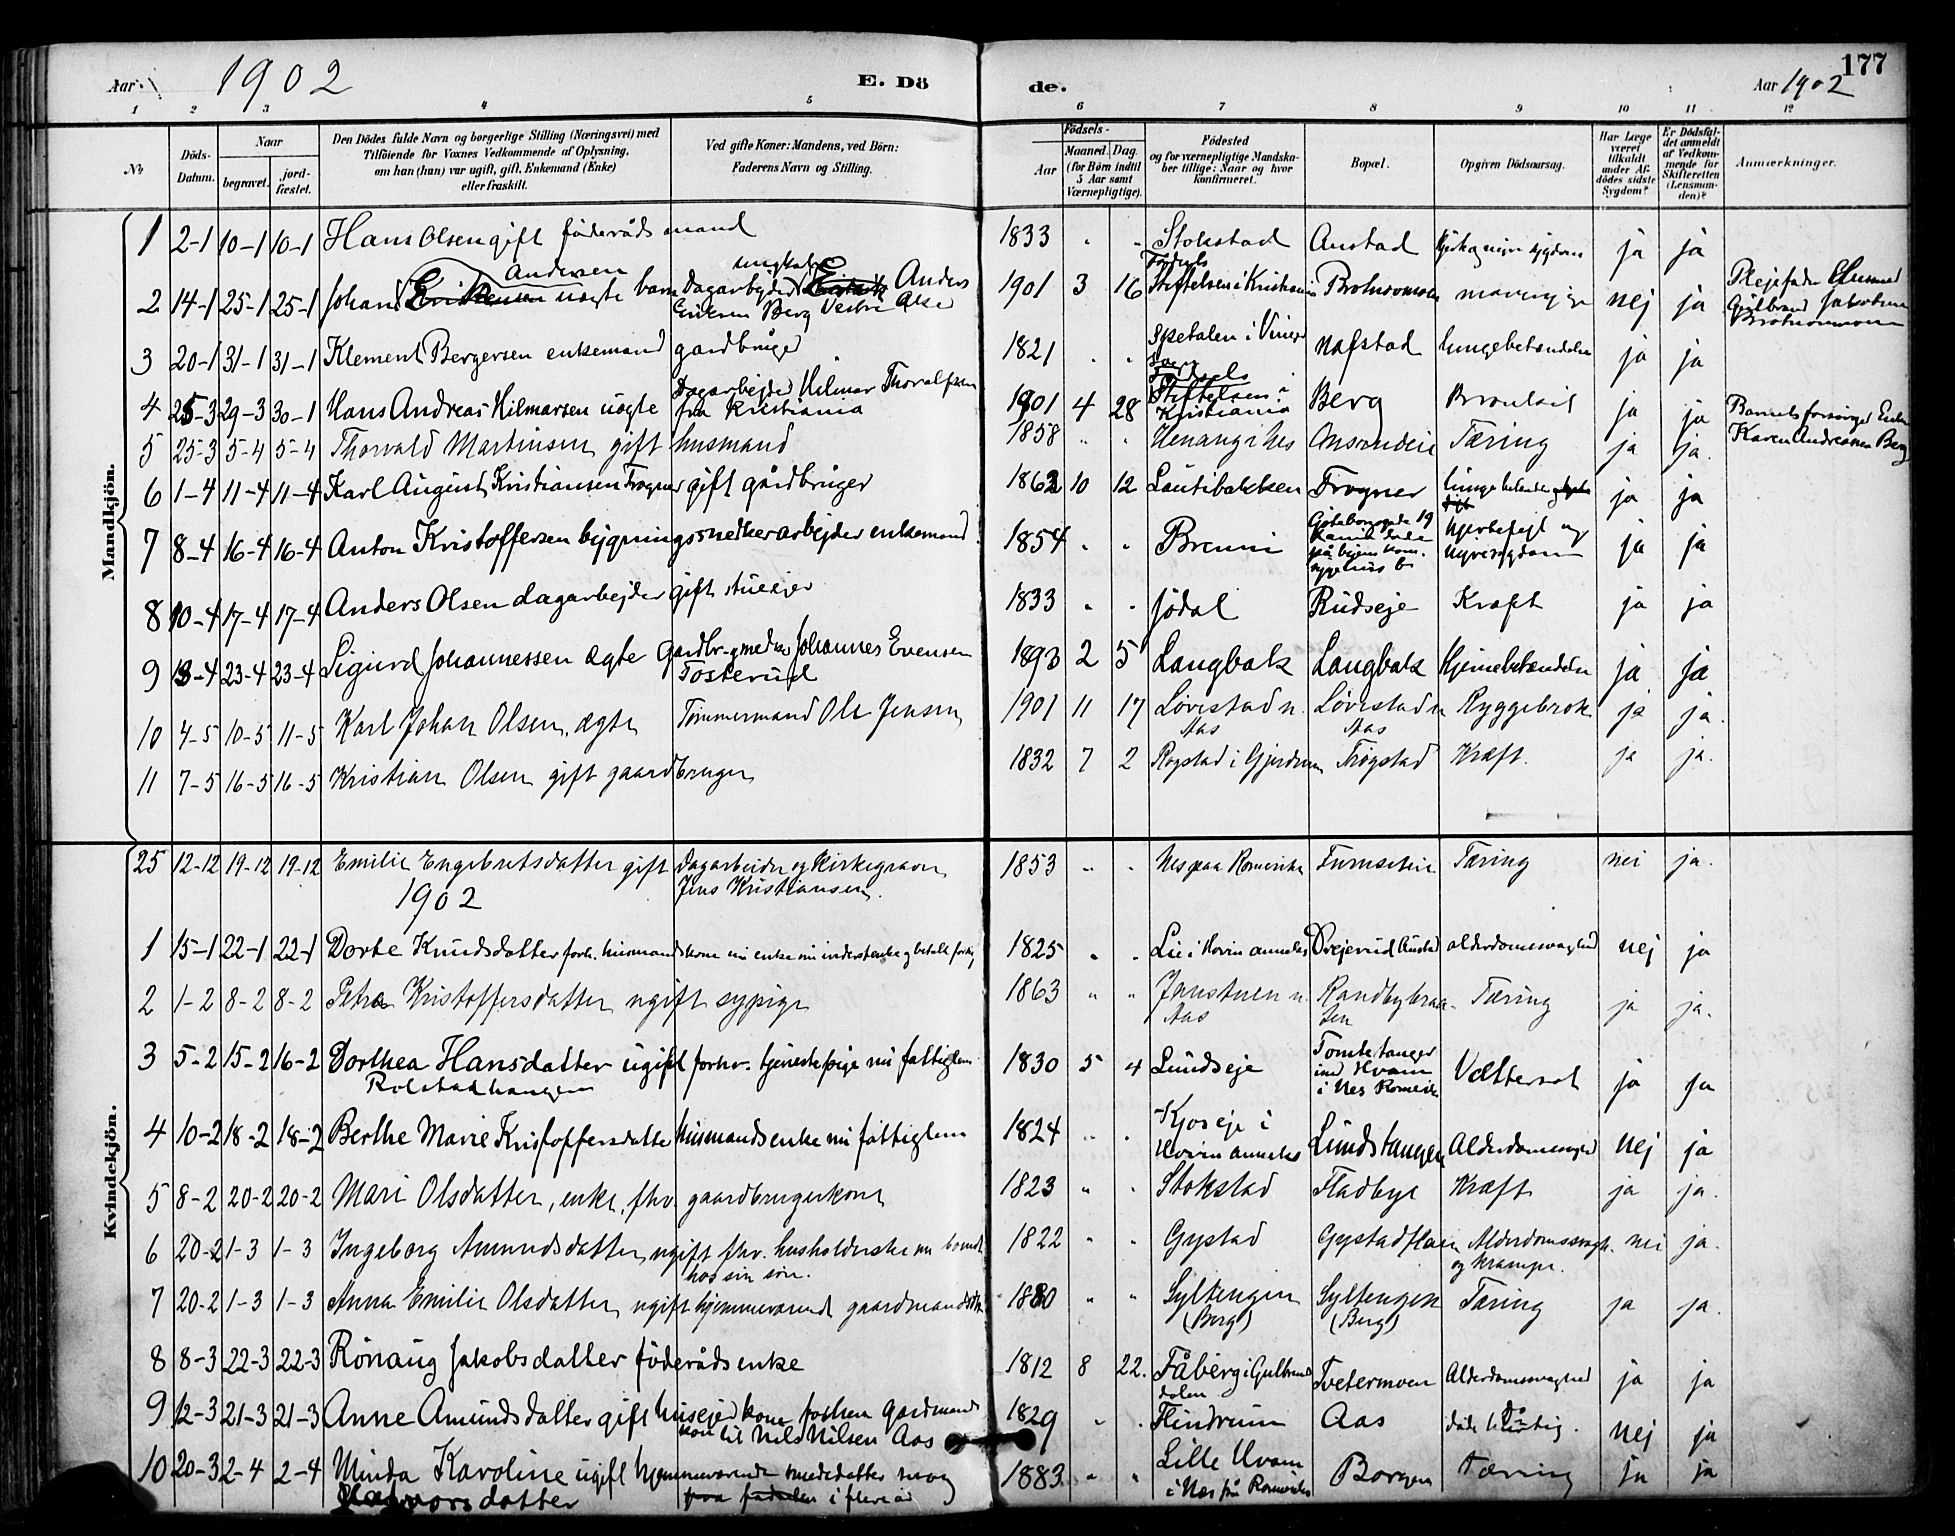 Aar 1902 E. Döde. Aar 1902 177
1 2 3 4 5 6 7 8 9 10 11 12
No Döds-Datum. Naar begravet. jord-fæstet. Den Dödes fulde Navn og borgerlige Stilling (Næringsvei) med Tilföiende for Voxnes Vedkommende af Oplysning, om han (hun) var ugift, gift, Enkemand (Enke) eller fraskilt. Ved gifte Koner: Mandens, ved Börn: Faderens Navn og Stilling. Födsels- Aar Maaned. Dag. (for Börn indtil 5 Aar samt Værnepligtige). Födested og for værnepligtige Mandskaber tillige: Naar og hvor konfirmeret. Bopæl. Opgiven Dödsaarsag. Har Læge været tilkaldt under Afdödes sidste Sygdom? Er Dödsfaldet anmeldt af Vedkommende for Skifteretten (Lensmanden)? Anmærkninger.
Mandkjön.
1 2-1 10-1 10-1 Hans Olsen gift föderåds mand 1833 " " Stokstad Austad ja ja
2 14-1 25-1 25-1 Johan Andersen uægte barn Dagarbejder ungkarl Anders Eriksen Berg Vestre 1901 3 16 Födsels Stiftelsen i Kristiania nej ja Plejefader Gulbrand Jakobsen
3 20-1 31-1 31-1 Klement Bergersen enkemand gardbruger 1821 " " Spetalen i Vinger Nafstad lungebetændelse ja ja
4 25-3 29-3 30-1 Hans Andreas Hilmarsen uægte Dagarbejder Hilmar Thoralfsen fra Kristiania 1901 4 28 Födsels Stiftelsen i Kristiania Berg ja ja Barnets forsørger Enke Karen Andreasen Berg
5 25-3 5-4 5-4 Thorvald Martinsen gift husmand 1858 " " Henang i Nes Tæring ja ja.
6 1-4 11-4 11-4 Karl August Kristiansen Frogner gift gårdbruger 1862 10 12 Lautibakken Frogner ja ja
7 8-4 16-4 16-4 Anton Kristoffersen bygningssnedkerarbejder enkemand 1854 " " Brenni Göteborggade 19 Hjertefejl og nyresygdom ja ja
8 10-4 17-4 17-4 Anders Olsen dagarbejder gift stuesejer 1833 " " Jödal Rudseje Kræft ja ja
9 13-4 23-4 23-4 Sigurd Johannessen ægte Gardbr. Johannes Evensen Fosterud 1893 2 5 Langbak Langbak Hjernebetændelse ja ja
10 4-5 10-5 11-5 Karl Johan Olsen, ægte Tømmermand Ole Jensen 1901 11 17 Løvestad n. Aas Løvestad n. Aas Ryggebrok ja ja.
11 7-5 16-5 16-5 Kristian Olsen gift gaardbruger 1832 7 2 Rogstad i Gjerdrum Trøgstad Kræft. ja ja.
Kvindekjön.
25 12-12 19-12 19-12 Emilie Engebretsdatter gift Dagarbeider og Kirkegraver Jens Kristiansen. 1853 " " Nes paa Romerike Furuseteie Tæring nei ja.
1902
1 15-1 22-1 22-1 Dorte Knudsdatter forh. husmandskone nu enke 1825 " " Lie i Hovin annekes Drejerud Austad alderdomssvaghed nej ja
2 1-2 8-2 8-2 Petra Kristoffersdatter ugift sypige 1863 " " Jenstuen n. Aas Randbybraaten Tæring ja ja.
3 5-2 15-2 16-2 Dorthea Hansdatter ugift forhv. tjenestepige nu fattiglem Rolstadhaugen 1830 5 4 Lundseje Tomtetanger ved Hvam i Nes Romerike Vattersot ja ja
4 10-2 18-2 18-2 Berthe Marie Kristoffersdatter husmandsenke nu fattiglem 1824 " " Kjoseje i Hovin anneks Lundstangen Alderdomssvaghed nej ja
5 8-2 20-2 20-2 Mari Olsdatter, enke, fhv. gaardbrugerkone 1823 " " Stokstad Fladbye Kræft ja ja.
6 20-2 1-3 1-3 Ingeborg Amundsdatter, ugift fhv. husholderske nu boende hos sin søn. 1822 " " Gystad Gystadflaen Alderdomssvagh. og Krampe. nei ja.
7 20-2 1-3 1-3 Anna Emilie Olsdatter, ugift hjemmeværende gaardmandsdtr. 1880 " " Syltengen (Berg) Syltengen (Berg) Tæring ja ja.
8 8-3 22-3 22-3 Rönaug Jakobsdatter föderådsenke 1812 8 22. Fåberg i Gulbrandsdalen Tvetermoen Alderdomssvaghed ja ja
9 12-3 21-3 21-3 Anne Amundsdatter gift husejerkone forhen gardmandskone til Nils Nilsen Aas 1829 " " Flindrum Aas nej ja
10 20-3 2-4 2-4 Minda Karoline Hafvorsdatter ugift hjemmeværende smededatter i flere år 1883 " " Lille Hvam i Nes på Romerike Borgen Tæring ja ja